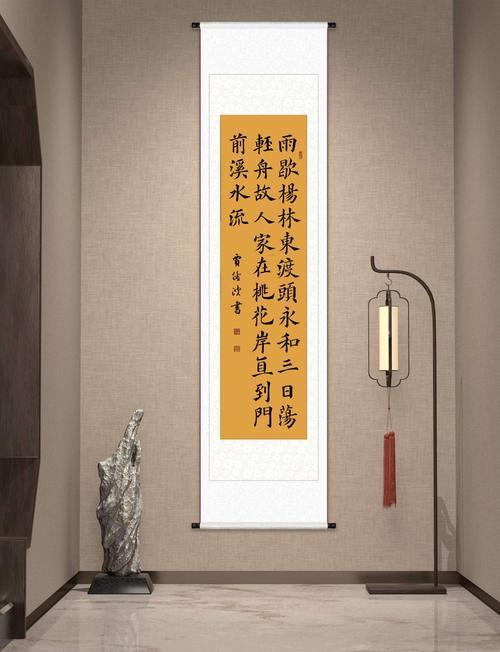 雨歇楊林東渡頭永和三日蕩
輕舟故人家在桃花岸直到門
前溪水流
書